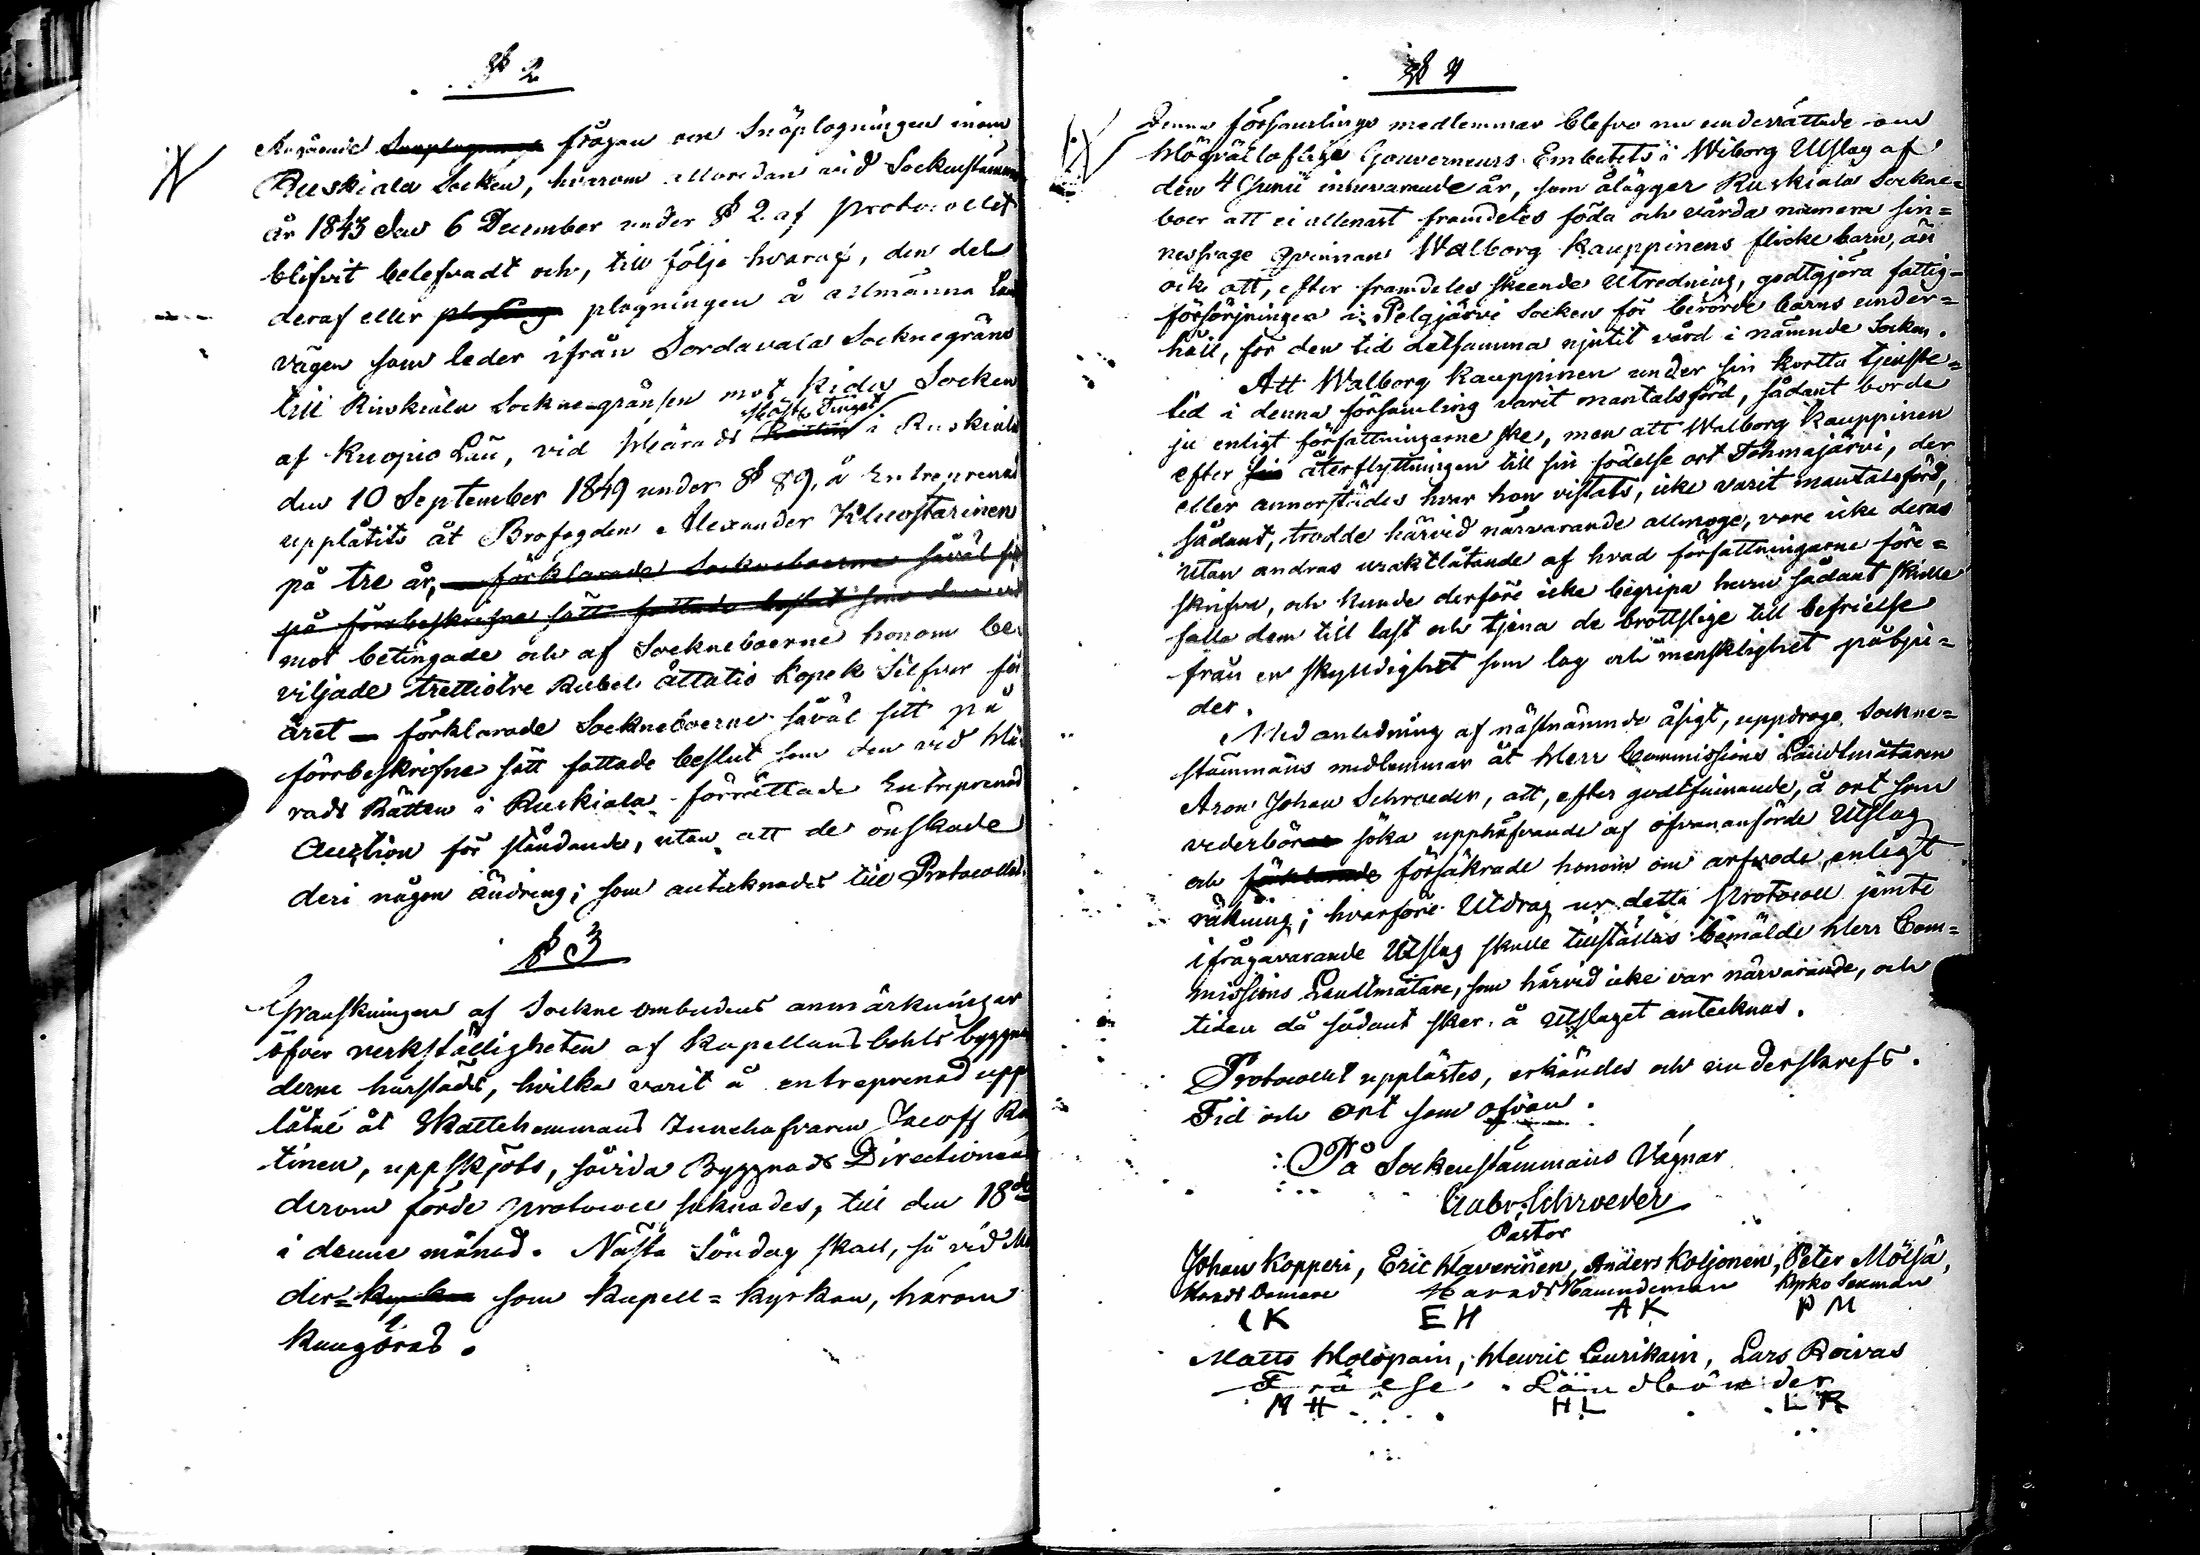 § 2
Angående frågan om Snöplogningen inom
Ruskiala Socken, hvarom allaredan vid Sockenstämma
år 1843 den 6 December under § 2 af protocollet
blifvit belefvadt och, till följe hvaraf, den del
deraf eller plogningen å allmänna
vägen som leder ifrån Sordavala Socknegräns
till Ruskiala Socknegränsen mot Kides Socken
af Kuopio Län, vid Härads Höste Tinget i Ruskiala
den 10 September 1849 under § 89, å Entreprenad
upplåtits åt Brofogden Alexander
på tre år, förklarade Sockneboerne såväl sitt
på förrbeskrifne sätt fattade beslut som den vid
mot betingade och af Sockneboerne honom be-
viljade trettiotre Rubel åttatio Kopek Silfver för
året — förklarade Sockneboerne såväl sitt på
förrbeskrifne sätt fattade beslut som den vid Hä-
rads Rätten i Ruskiala förrättade Entreprenad
Auction för ståndande, utan att de önskade
deri någon ändring; som antecknades till Protocollet.
§ 3
Granskningen af Sockne ombudens anmärkningar
öfver verkställigheten af Kapellansbohls byggna
derne härstädes, hvilka varit å entreprenad upp
låtne åt Skattehemmans Innehafvaren Jacoff
tinen, uppskjöts, såvida Byggnads Directionens
derom förde protocoll saknades, till den 18de
i denne månad. Nästa Söndag skall, så vid Mo
der= kyrkan som Kapell=kyrkan, härom
kungöras.
§ 4
Denna församlings medlemmar blefvo nu underrättade om
Högvällofliga Gouverneurs Embetets i Wiborg Utslag af
den 4 Junii innevarande år, som ålägger Ruskiala Sockne=
boer att ei allenast framdeles föda och vårda numera sin=
nessvage qvinnan Walborg Kauppinens flicke barn, än
ock att, efter framdeles skeende Utredning, godtgjöra fattig=
försörjningen i Pelgjärvi Socken för berörde barns under=
håll, för den tid detsamma njutit vård i nämnde Socken.
Att Walborg Kauppinen under sin kortta tjenste=
tid i denna församling varit mantalsförd, sådant borde
ju enligt författningarne ske, men att Walborg Kauppinen
efter sin återflyttningen till sin födelse ort Tohmajärvi, der
eller annorstädes hvar hon vistats, icke varit mantalsförd,
sådant, trodde härvid närvarande allmoge, vore icke deras
utan andras uraktlåtande af hvad författningarne före=
skrifva, och kunde derföre icke begripa huru sådant skulle
falla dem till last och tjena de brottslige till befrielse
från en skyldighet som lag och mensklighet påbju=
der.
Med anledning af nästnämnde åsigt, uppdrogo Sockne=
stämmans medlemmar åt Herr Commissions Landtmätaren
Aron Johan Schroeder, att, efter godtfinnande, å ort som
vederbör söka upphäfvande af ofvananförde Utslag
och förklarade försäkrade honom om arfvode enligt
räkning; hvarföre Utdrag ur detta Protocoll jemte
ifrågavarande Utslag skulle tillställas bemälde Herr Com=
missions Landtmätare, som härvid icke var närvarande, och
tiden då sådant sker å Utslaget antecknas.
Protocollet upplästes, erkändes och underskrefs.
Tid och ort som ofvan.
På Sockenstämmans Vägnar
Gabr. Schroeder
Pastor
Johan Kopperi, Eric Haverinen, Anders Koljonen, Peter Mölsä,
Härads Domare Härads Nämndeman Kyrko Sexman
I K E H A K P M
Matts Holopain, Henric Laurikain, Lars Roivas
Frälse Landbönder
M H H L L R